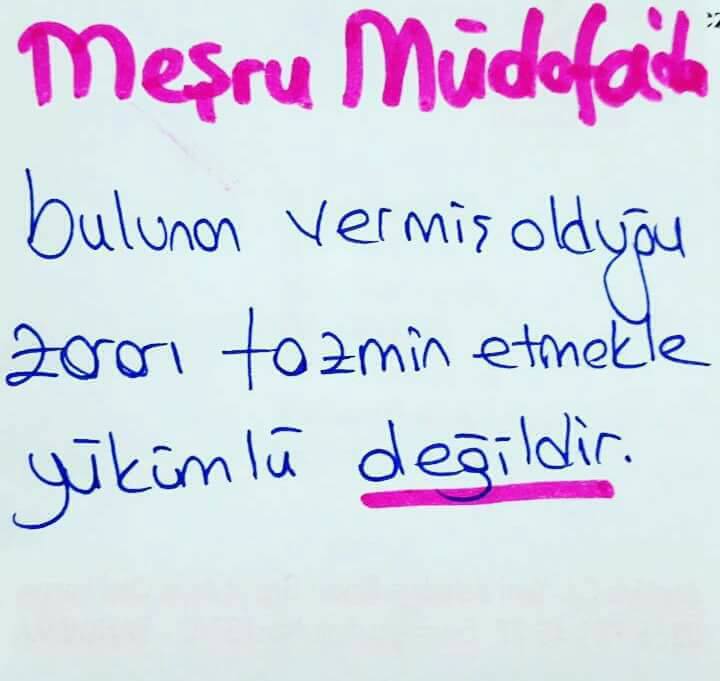 Meşru Müdafa'da
bulunan vermiş olduğu
zararı tazmin etmekle
yükümlü değildir.